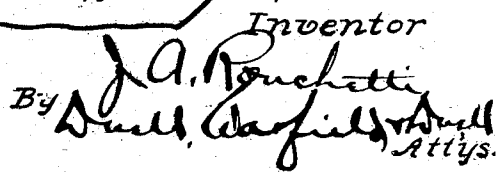 Inventor
J. A. Ronchetti
By Duell, Warfield & Duell
Attys.